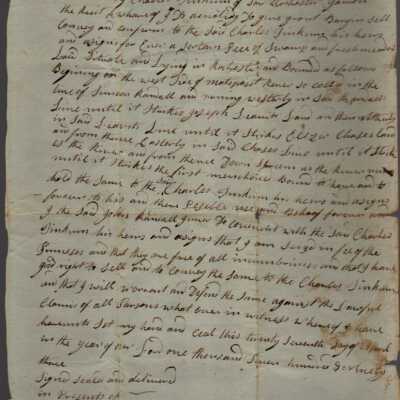 by Charles Jinkins of said Rochester Yeoman
the Rceit whareof I Do acnoligDg Do give grant Bargin sell
Convey and confirm to the Said Charles Jinkins his heirs
and asigns for Ever a Sertain Peec of Swamp and freshmeadow
Laid Setuate and Lying in Rochester and Bounded as follows
Begining on the west Side of matapoiset River so Cold in the
line of Simion Randall and runing westerly in Said Randalls
Line until it Strikes Joseph Leavits Land and then northerly
in Said Leavits Line until it Strikes Elezer Chases Land
and from thence Easterly in Said Chases Line until it Strik
es the River and from thence Down Stream as the River runs
until it Strikes the first menshoned Bound to have and to
hold the Same to the Charles Jinkins his heirs and asigns
forever to his and there Proper use and Behoof forever and
I the Said John Randall Juner Do Covenant with the Said Charles
Jinkins his heirs and asigns that I am Seizd in fee of the
Primeses and that they are free of all incumbrances and that I have
good right to Sell and to Convay the Same to the Charles Jinkins
and that I will warant and Defend the Same against the Lawful
Claims of all Parsons what ever in witness whereof I have
hereunto Set my hand and Ceal this twenty Seventh Day of
in the year of our Lord one thousand Seven hundred & Ninety
three
Signed Sealed and delivered
in Presents of